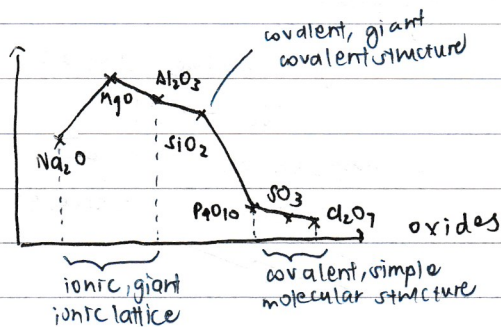 covalent, giant
covalent structure
Al₂O₃
MgO
SiO₂
Na₂O
P₄O₁₀
SO₃
Cl₂O₇
oxides
ionic, giant
ionic lattice
covalent, simple
molecular structure